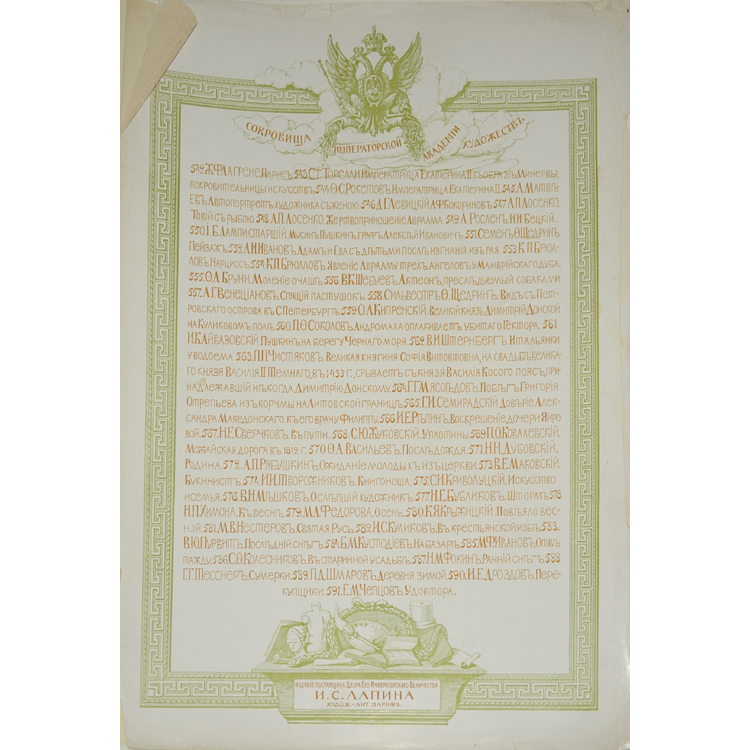 СОКРОВИЩА ИМПЕРАТОРСКОЙ АКАДЕМІИ ХУДОЖЕСТВЪ
542. Ж.Ф.Л.ГРЕНЕ. ПАРИСЪ. 543. СТ. ТОРЕЛЛИ. ИМПЕРАТРИЦА ЕКАТЕРИНА II ВЪ ОБРАЗѢ МИНЕРВЫ,
ПОКРОВИТЕЛЬНИЦЫ ИСКУССТВЪ. 544. Ѳ.С.РОКОТОВЪ. ИМПЕРАТРИЦА ЕКАТЕРИНА II. 545. А.МАТВѢ
ЕВЪ. АВТОПОРТРЕТЪ ХУДОЖНИКА С ЖЕНОЮ. 546. Д.Г.ЛЕВИЦКІЙ. А.Ф.КОКОРИНОВЪ. 547. А.П.ЛОСЕНКО
ТОВІЙ СЪ РЫБОЮ. 548. А.П.ЛОСЕНКО. ЖЕРТВОПРИНОШЕНІЕ АВРААМА. 549. А.РОСЛЕНЪ. И.И.БЕЦКІЙ.
550. І.Б.ЛАМПИ СТАРШІЙ. МУСИНЪ ПУШКИНЪ, ГРАФЪ АЛЕКСѢЙ ИВАНОВИЧЪ. 551. СЕМЕНЪ Ѳ.ЩЕДРИНЪ.
ПЕЙЗАЖЪ. 552. А.И.ИВАНОВЪ. АДАМЪ И ЕВА СЪ ДѢТЬМИ ПОСЛѢ ИЗГНАНІЯ ИЗЪ РАЯ. 553. К.П.БРЮЛ-
ЛОВЪ. НАРЦИССЪ. 554. К.П.БРЮЛЛОВЪ. ЯВЛЕНІЕ АВРААМУ ТРЕХЪ АНГЕЛОВЪ У МАМВРІЙСКАГО ДУБА.
555. Ѳ.А.БРУНИ. МОЛЕНІЕ О ЧАШѢ. 556. В.К.ШЕБУЕВЪ. АКТЕОНЪ, ПРЕСЛѢДУЕМЫЙ СОБАКАМИ
557. А.Г.ВЕНЕЦІАНОВЪ. СПЯЩІЙ ПАСТУШОКЪ. 558. СИЛЬВЕСТРЪ Ѳ.ЩЕДРИНЪ. ВИДЪ СЪ ПЕТ-
РОВСКАГО ОСТРОВА ВЪ С.ПЕТЕРБУРГѢ. 559. О.А.КИПРЕНСКІЙ. ВЕЛИКІЙ КНЯЗЬ ДИМИТРІЙ ДОНСКОЙ
НА КУЛИКОВОМЪ ПОЛѢ. 560. П.Ѳ.СОКОЛОВЪ. АНДРОМАХА ОПЛАКИВАЕТЪ УБИТАГО ГЕКТОРА. 561.
И.К.АЙВАЗОВСКІЙ. ПУШКИНЪ НА БЕРЕГУ ЧЕРНАГО МОРЯ. 562. В.И.ШТЕРНБЕРГЪ. ИТАЛЬЯНКИ
У ВОДОЕМА. 563. П.П.ЧИСТЯКОВЪ. ВЕЛИКАЯ КНЯГИНЯ СОФІЯ ВИТОВТОВНА, НА СВАДЬБѢ ВЕЛИКА-
ГО КНЯЗЯ ВАСИЛІЯ II ТЕМНАГО, ВЪ 1433 Г., СРЫВАЕТЪ СЪ КНЯЗЯ ВАСИЛІЯ КОСОГО ПОЯСЪ, ПРИ-
НАДЛЕЖАВШІЙ НѢКОГДА ДИМИТРІЮ ДОНСКОМУ. 564. Г.Г.МЯСОѢДОВЪ. ПОБѢГЪ ГРИГОРІЯ
ОТРЕПЬЕВА ИЗЪ КОРЧМЫ НА ЛИТОВСКОЙ ГРАНИЦѢ. 565. Г.И.СЕМИРАДСКІЙ. ДОВѢРІЕ АЛЕК-
САНДРА МАКЕДОНСКАГО КЪ ЕГО ВРАЧУ ФИЛИППУ. 566. И.Е.РѢПИНЪ. ВОСКРЕШЕНІЕ ДОЧЕРИ ЯИРО-
ВОЙ. 567. Н.Е.СВЕРЧКОВЪ. ВЪ ПУТИ. 568. С.Ю.ЖУКОВСКІЙ. У ПЛОТИНЫ. 569. П.О.КОВАЛЕВСКІЙ.
МОЖАЙСКАЯ ДОРОГА ВЪ 1812 Г. 570. Ѳ.А.ВАСИЛЬЕВЪ. ПОСЛѢ ДОЖДЯ. 571. Н.Н.ДУБОВСКІЙ.
РОДИНА. 572. А.П.РЯБУШКИНЪ. ОЖИДАНІЕ МОЛОДЫХЪ ИЗЪ ЦЕРКВИ. 573. В.Е.МАКОВСКІЙ.
БУКИНИСТЪ. 574. И.И.ТВОРОЖНИКОВЪ. КНИГОНОША. 575. С.И.КРИВОЛУЦКІЙ. ИСКУССТВО
И СЕМЬЯ. 576. В.Н.МѢШКОВЪ. ОСЛѢПШІЙ ХУДОЖНИКЪ. 577. Н.Е.БУБЛИКОВЪ. ШТОРМЪ. 578.
Н.П.ХИМОНА. КЪ ВЕСНѢ. 579. М.А.ФЕДОРОВА. ОСЕНЬ. 580. К.Я.КРЫЖИЦКІЙ. ПОВѢЯЛО ВЕС-
НОЙ. 581. М.В.НЕСТЕРОВЪ. СВЯТАЯ РУСЬ. 582. И.С.КУЛИКОВЪ. ВЪ КРЕСТЬЯНСКОЙ ИЗБѢ. 583.
В.Ю.ПУРВИТЪ. ПОСЛѢДНІЙ СНѢГЪ. 584. Б.М.КУСТОДІЕВЪ. НА БАЗАРѢ. 585. М.Ф.ИВАНОВЪ. ОТЪѢ
ТАЖДУ. 586. С.Ѳ.КОЛЕСНИКОВЪ. ВЪ СТАРИННОЙ УСАДЬБѢ. 587. Н.М.ФОКИНЪ. РАННІЙ СНѢГЪ. 588
Г.Г.ГЕССНЕРЪ. СУМЕРКИ. 589. П.Д.ШМАРОВЪ. ДЕРЕВНЯ ЗИМОЙ. 590. И.Е.ДРОЗДОВЪ. ПЕРЕ-
КУПЩИКИ. 591. Е.М.ЧЕПЦОВЪ. У ДОКТОРА.
ИЗДАНІЕ ПОСТАВЩИКА ДВОРА ЕГО ИМПЕРАТОРСКАГО ВЕЛИЧЕСТВА
И.С.ЛАПИНА
ХУДОЖ.-ЛИТ. ПАРИЖЪ.